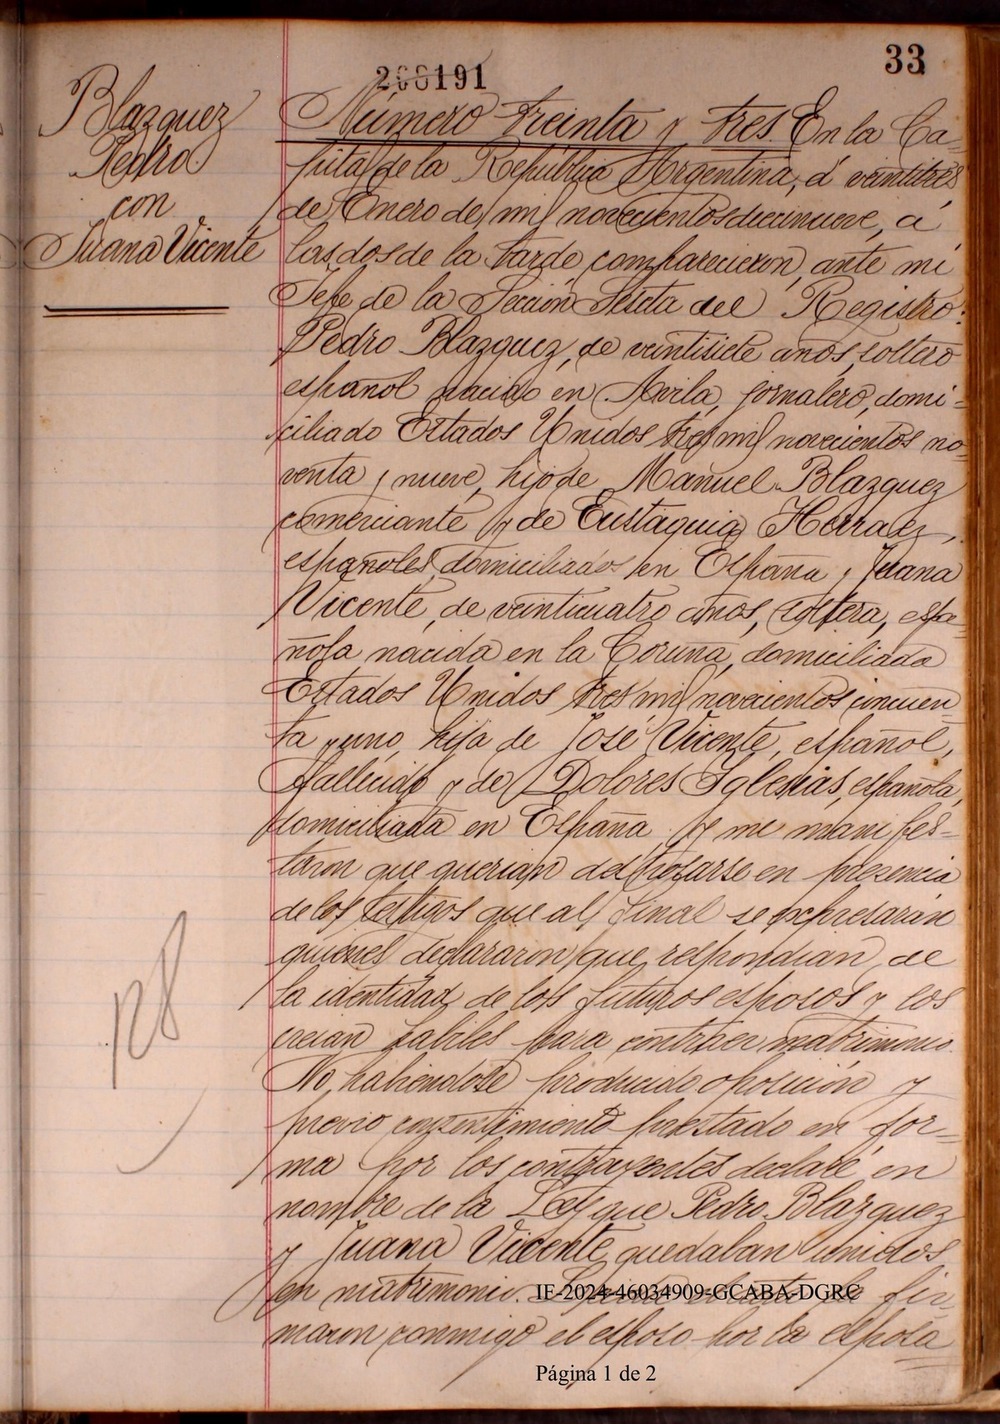 33
200191
Blazquez
Pedro
con
Juana Vicente
Número treinta y tres. En la Ca-
pital de la República Argentina, á veintitres
de Enero de mil novecientos diecinueve, á
las dos de la tarde, comparecieron, ante mi
Jefe de la Sección Sexta del Registro:
Pedro Blazquez, de veintisiete años, soltero
español nacido en Avila, jornalero, domi-
ciliado Estados Unidos tres mil novecientos no-
venta y nueve, hijo de Manuel Blazquez
comerciante y de Eustaquia Herraez,
españoles, domiciliados en España y Juana
Vicente, de veinticuatro años, soltera, espa-
ñola nacida en la Coruña, domiciliada
Estados Unidos tres mil novecientos cincuen-
ta y uno, hija de José Vicente, español,
fallecido y de Dolores Iglesias, española,
domiciliada en España. Y me manifes-
taron que querian desposarse en presencia
de los testigos que al final se expresarán
quienes declararon, que respondian, de
la identidad de los futuros esposos y los
creian habiles para contraer matrimonio.
No habiendose producido oposición y
previo consentimiento prestado en for-
ma por los contrayentes declaré en
nombre de la Ley que Pedro Blazquez
y Juana Vicente quedaban unidos
en matrimonio. fir-
maron conmigo el esposo por la esposa
128
IE-2024-46034909-GCABA-DGRC
Página 1 de 2